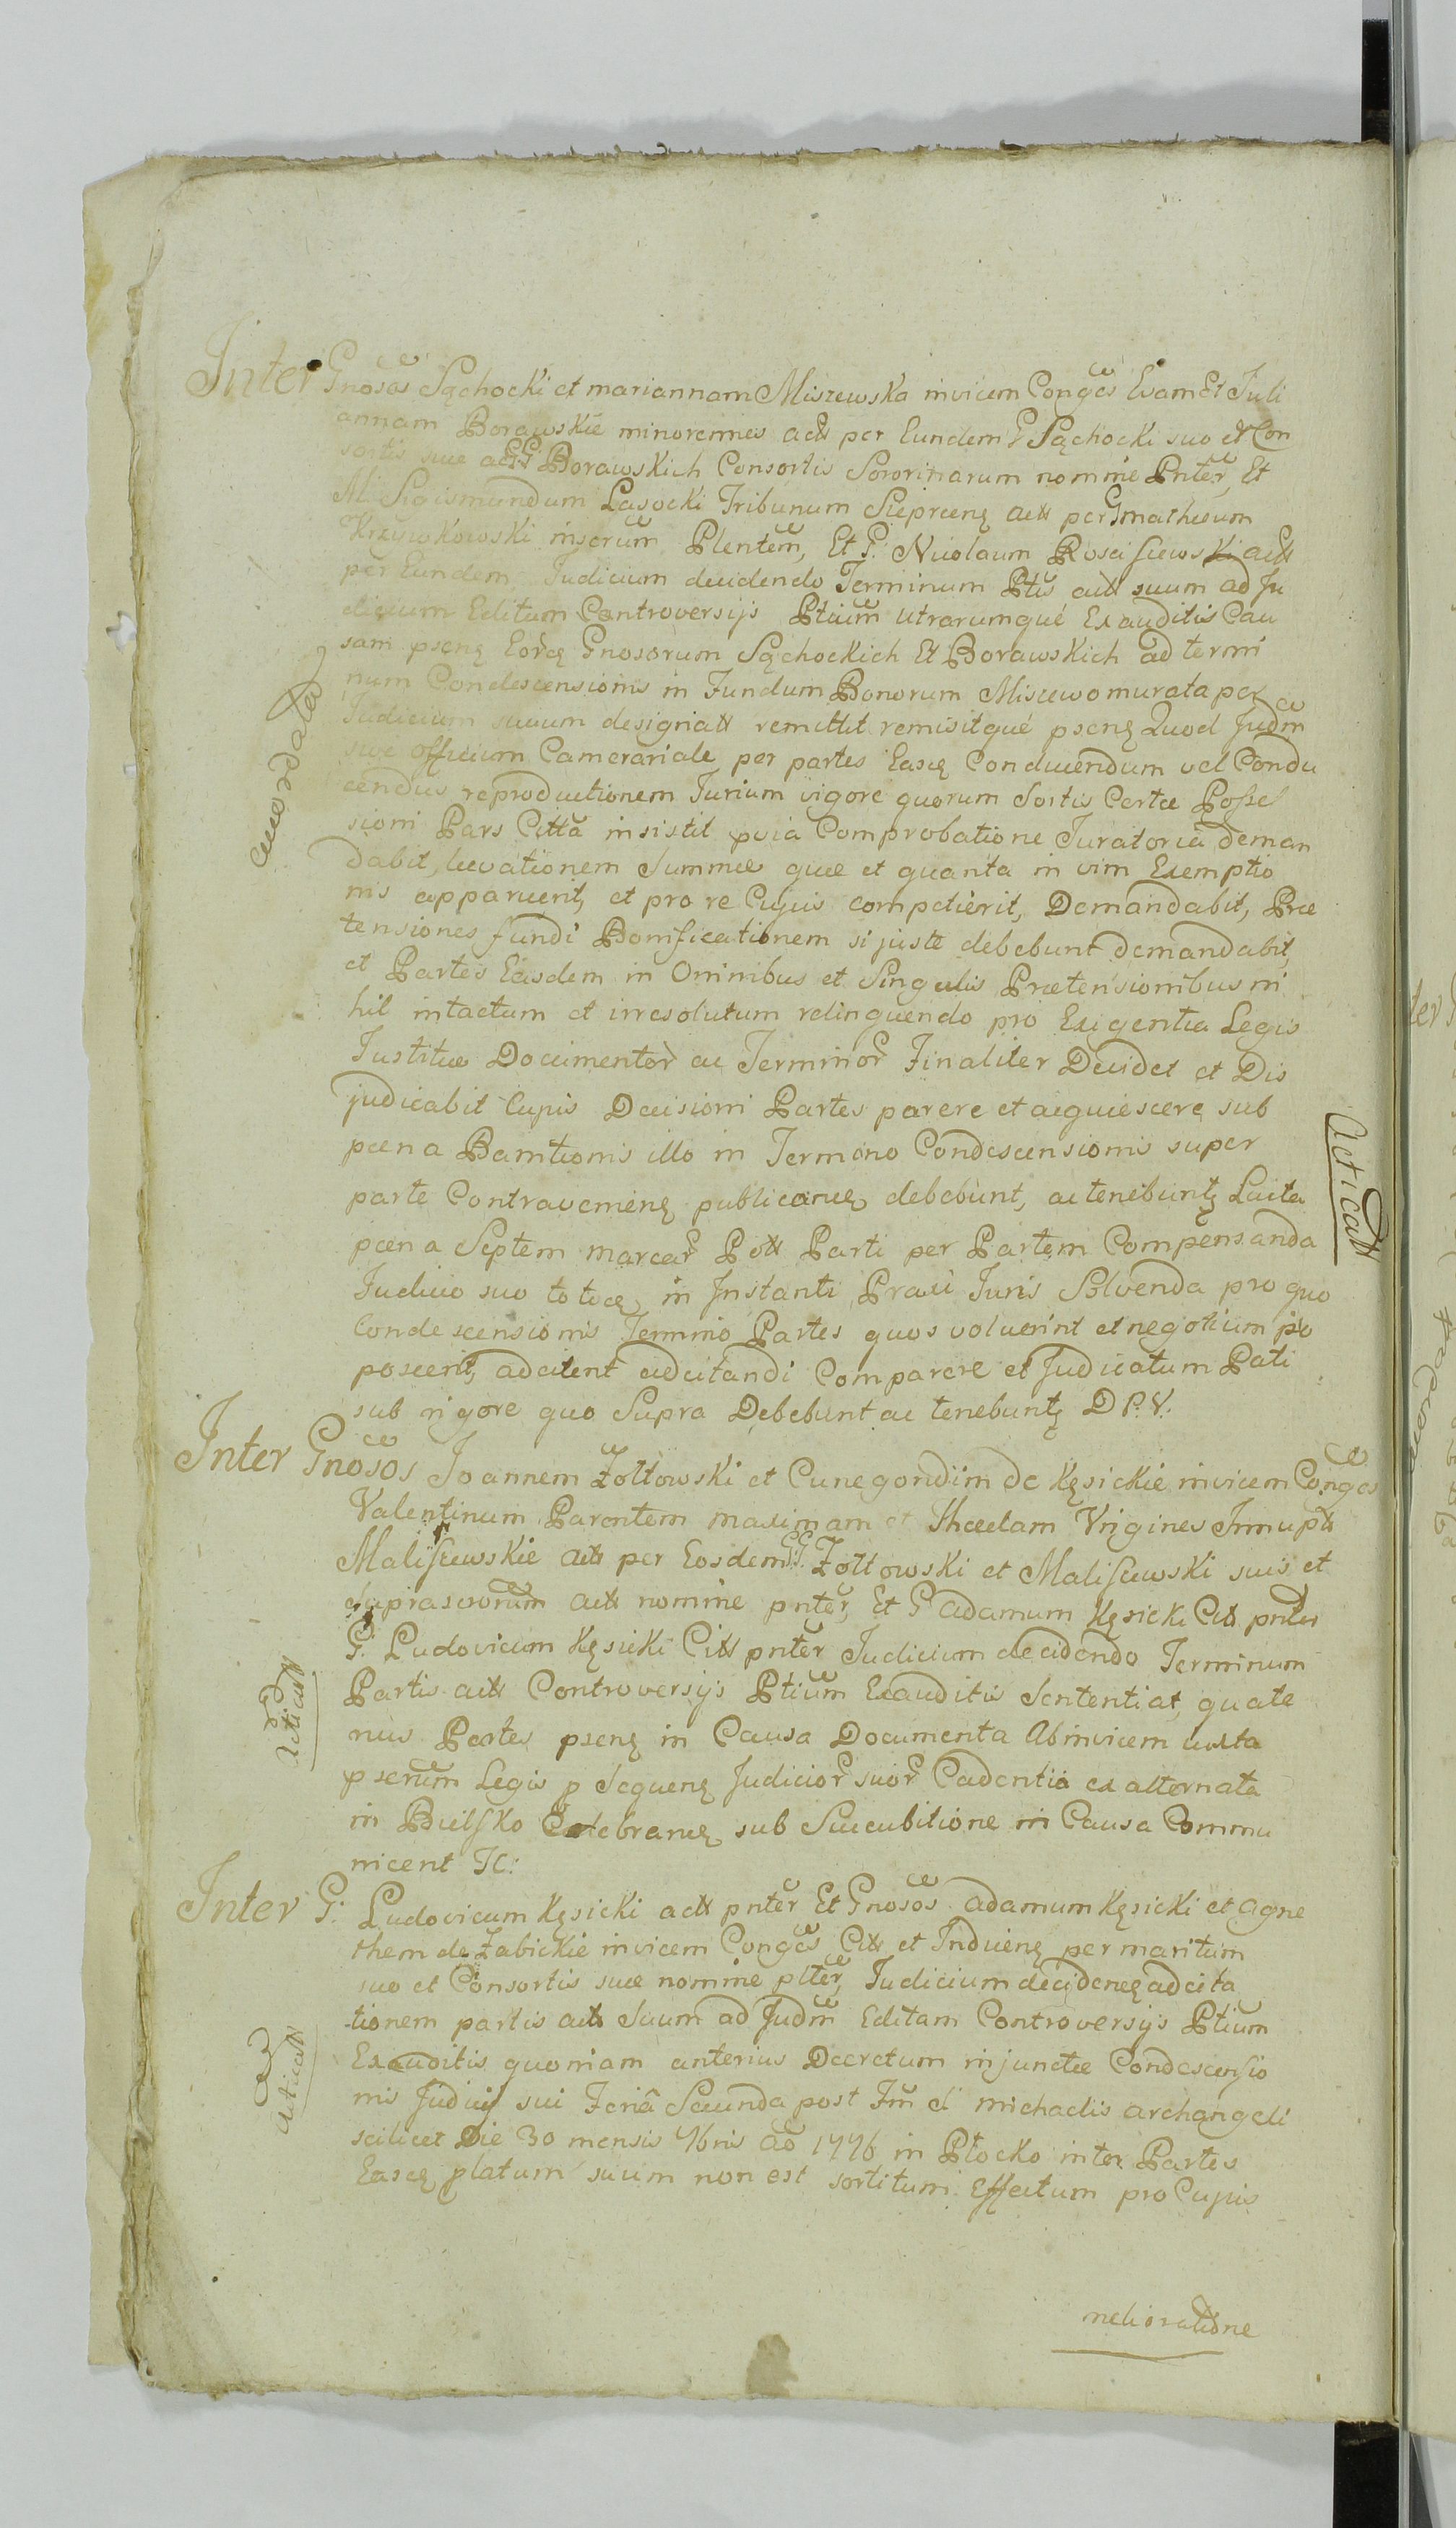 Inter Gnosos Sąchocki et mariannam Miszewska invicem Conges Evam Et Juli
annam Borawskie minorennes actt per Eundem G Sąchocki suo et Con
sortis suæ ac GG Borawskich Consortis Sororinarum nomine Pnter, Et
M. Sigismundum Lasocki Tribunum Sieprcenę actt per G matheum
Krzywkowski inserum Plentem, Et G. Nicolaum Roscissewski actt
per Eundem Judicium decidendo Terminum Ptis actt suum ad Ju
dicium Editum Controversijs Ptium utrarumqué Exauditis Cau
sam psenę Eorcę Gnosorum Sąchockich Et Borawskich ad termi
num Condescensionis in Fundum Bonorum Miszewo murata per
Judicium suum designatt remittit remisitqué psenę Quod Judm
sive officium Camerariale per partes Eascę Conducendum vel Condu
cendus reproductionem Jurium vigore quorum Sortis Certæ Posses
sioni Pars Citta insistit pvia Comprobatione Juratoria deman
dabit, levationem Summæ quæ et quanta in vim Exemptio
nis apparuerit, et pro re Cujus competierit, Demandabit, Præ
tensiones fundi Bonificationem si juste debebunt demandabit,
et Partes Easdem in Omnibus et Singulis Prætensionibus ni
hil intactum et irresolutum relinquendo pro Exigentia Legis
Justitiæ Documentor ac Terminor Finaliter Decidet et Dis
judicabit Cujus Decisioni Partes parere et acquiescere sub
pœna Bannitionis illo in Termino Condescensionis super
parte Contravenienę publicancę debebunt, ac tenebuntę Luita
pœna Septem marcar Pott Parti per Partem Compensanda
Judicio suo totocę in Instanti Praxi Juris Solvenda pro quo
Condescensionis Termino Partes quos voluerint et negotium po
poscerit, adcitent adcitandi Comparere et Judicatum Pati
sub rigore quo Supra Debebunt ac tenebuntę D P. V.
emendatę
acticatt
Inter Gnosos Joannem Zołtowski et Cunegondim de Kęsickie invicem Conges
Valentinum Parentem maximam et Theclam Virgines Innuptt
Malissewskie actt per Eosdem GG. Zołtowski et Malissewski suis et
suprascrorum actt nomine pnter, Et G adamum Kęsicki Citt pnter
G. Ludovicum Kęsicki Citt pnter Judicium decidendo Terminum
Partis actt Controversijs Ptium Exauditis Sententiat, quate
nus Partes psenę in Causa Documenta Ab invicem iuxta
pscrum Legis p Sequenę Judicior suor Cadentia ex alternata
in Bielsko Celebrancę sub Succubitione in Causa Commu
nicent Tc:
acticatt
Inter G: Ludovicum Kęsicki actt pnter Et Gnosos adamum Kęsicki et Agne
them de Zabickie invicem Conges Citt et Inducenę per maritum
suo et Consortis suæ nomine plter, Judicium decidencę adcita
tionem partis actt Suum ad Judm Editam Controversijs Ptium
Exauditis quoniam anterius Decretum injunctæ Condescensio
nis Judicij sui Feriâ Secunda post Fm S. michaelis archangeli
scilicet Die 30 mensis 7bris Ao 1776 in Płocko inter Partes
Eascę platum suum non est sortitum Effectum pro Cujus
acticatt
melioratione